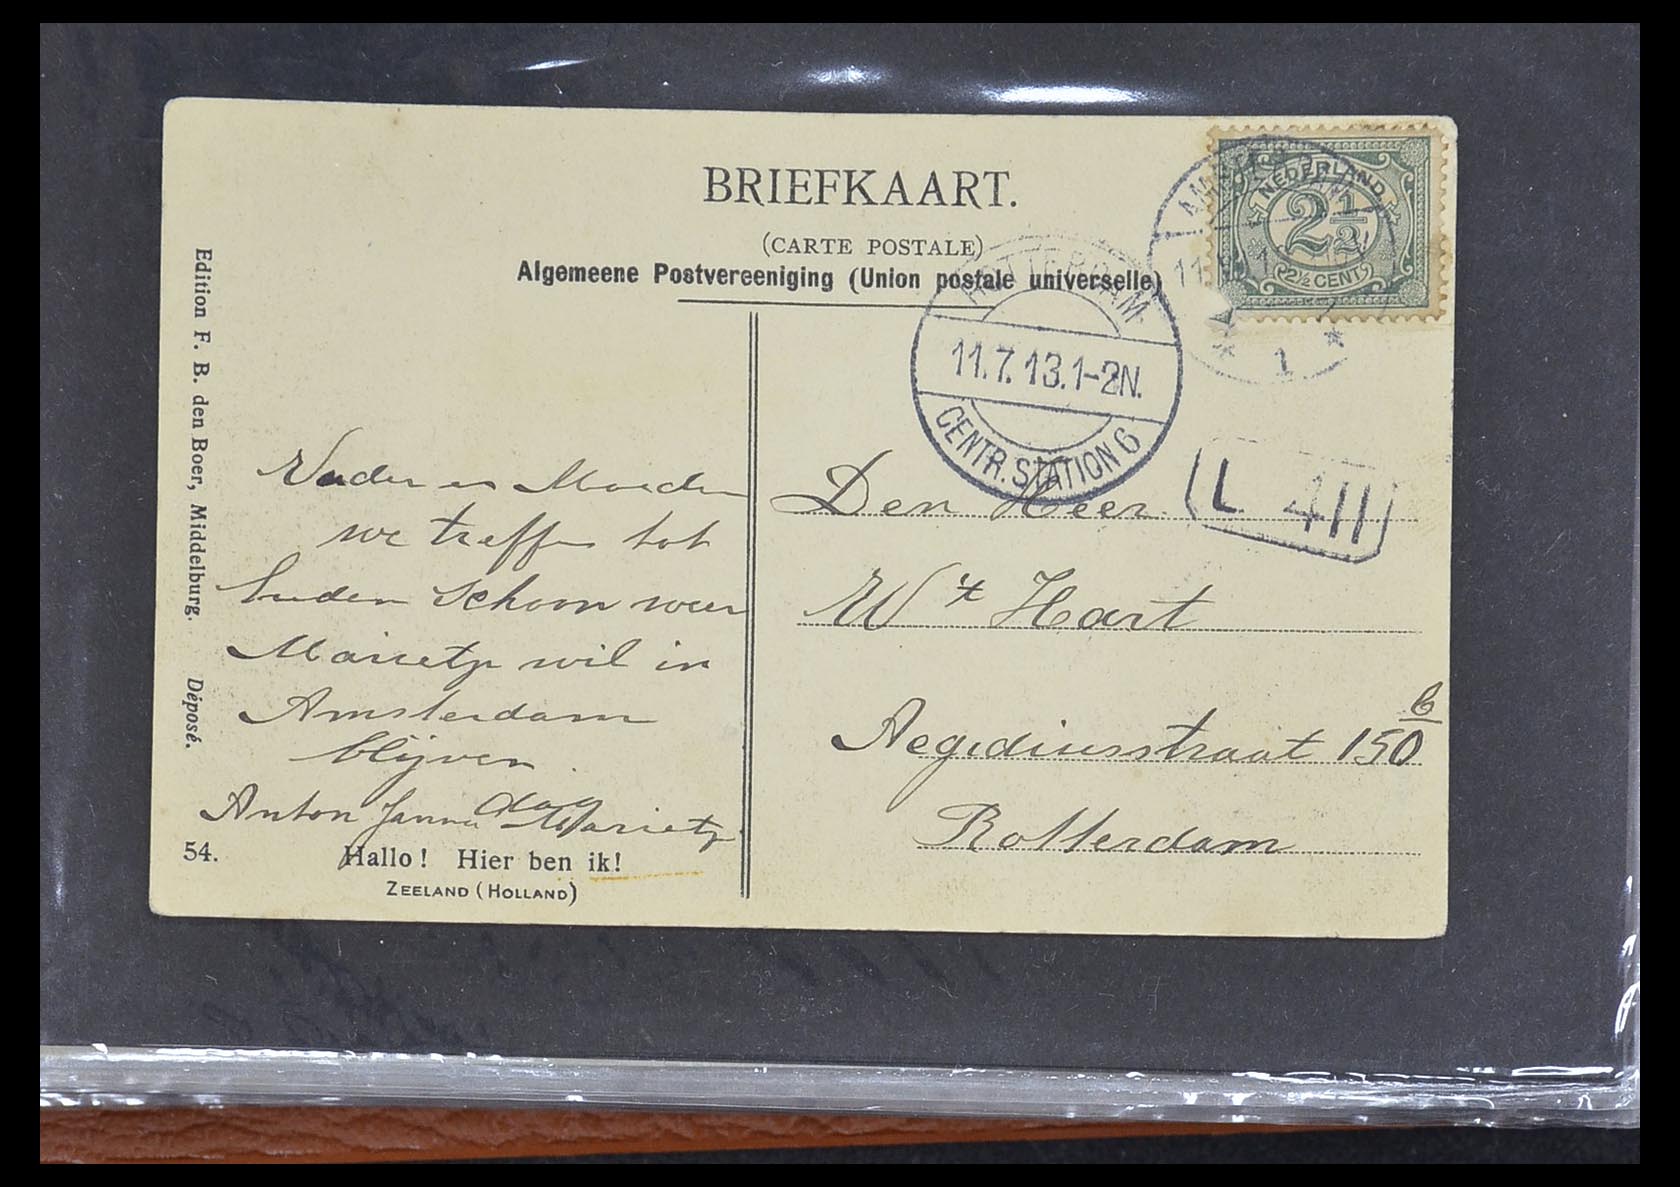 BRIEFKAART.
(CARTE POSTALE)
Algemeene Postvereeniging (Union postale universelle)
NEDERLAND
2½
2½ CENT
AMSTERDAM
1
ROTTERDAM
11.7.13.1-2N.
CENTR. STATION 6
L 411
Edition F. B. den Boer, Middelburg. Déposé.
Vader en Moeder
we treffen tot
heden schoon weer
Marietje wil in
Amsterdam
blijven.
dag
Anton Janna Marietje
54.
Hallo! Hier ben ik!
ZEELAND (HOLLAND)
Den Heer
W 't Hart
Aegidiusstraat 150 b
Rotterdam